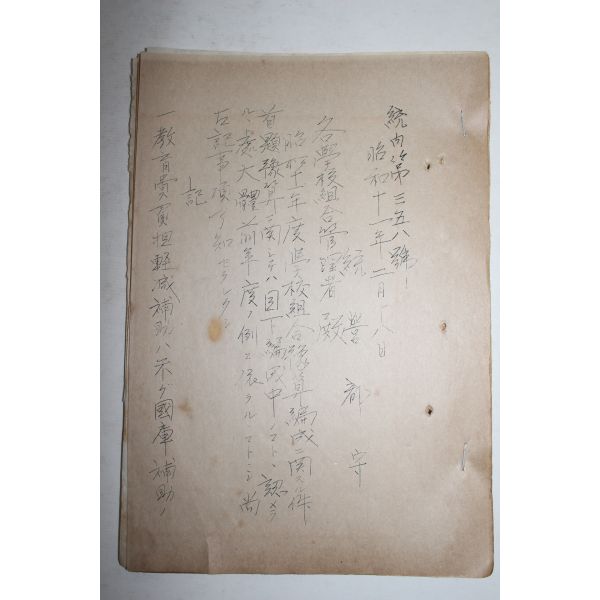 統內第三五八號
昭和十一年二月十八日
統營郡守
各學校組合管理者殿
昭和十一年度學校組合豫算編成ニ關スル件
首題豫算ニ關シテハ目下編成中ノコトト認メラ
ルル處大體前年度ノ例ニ依ラルルコトトシ尚
左記事項了知セラレタシ
記
一教育費負担輕減補助ハ國庫補助ノ